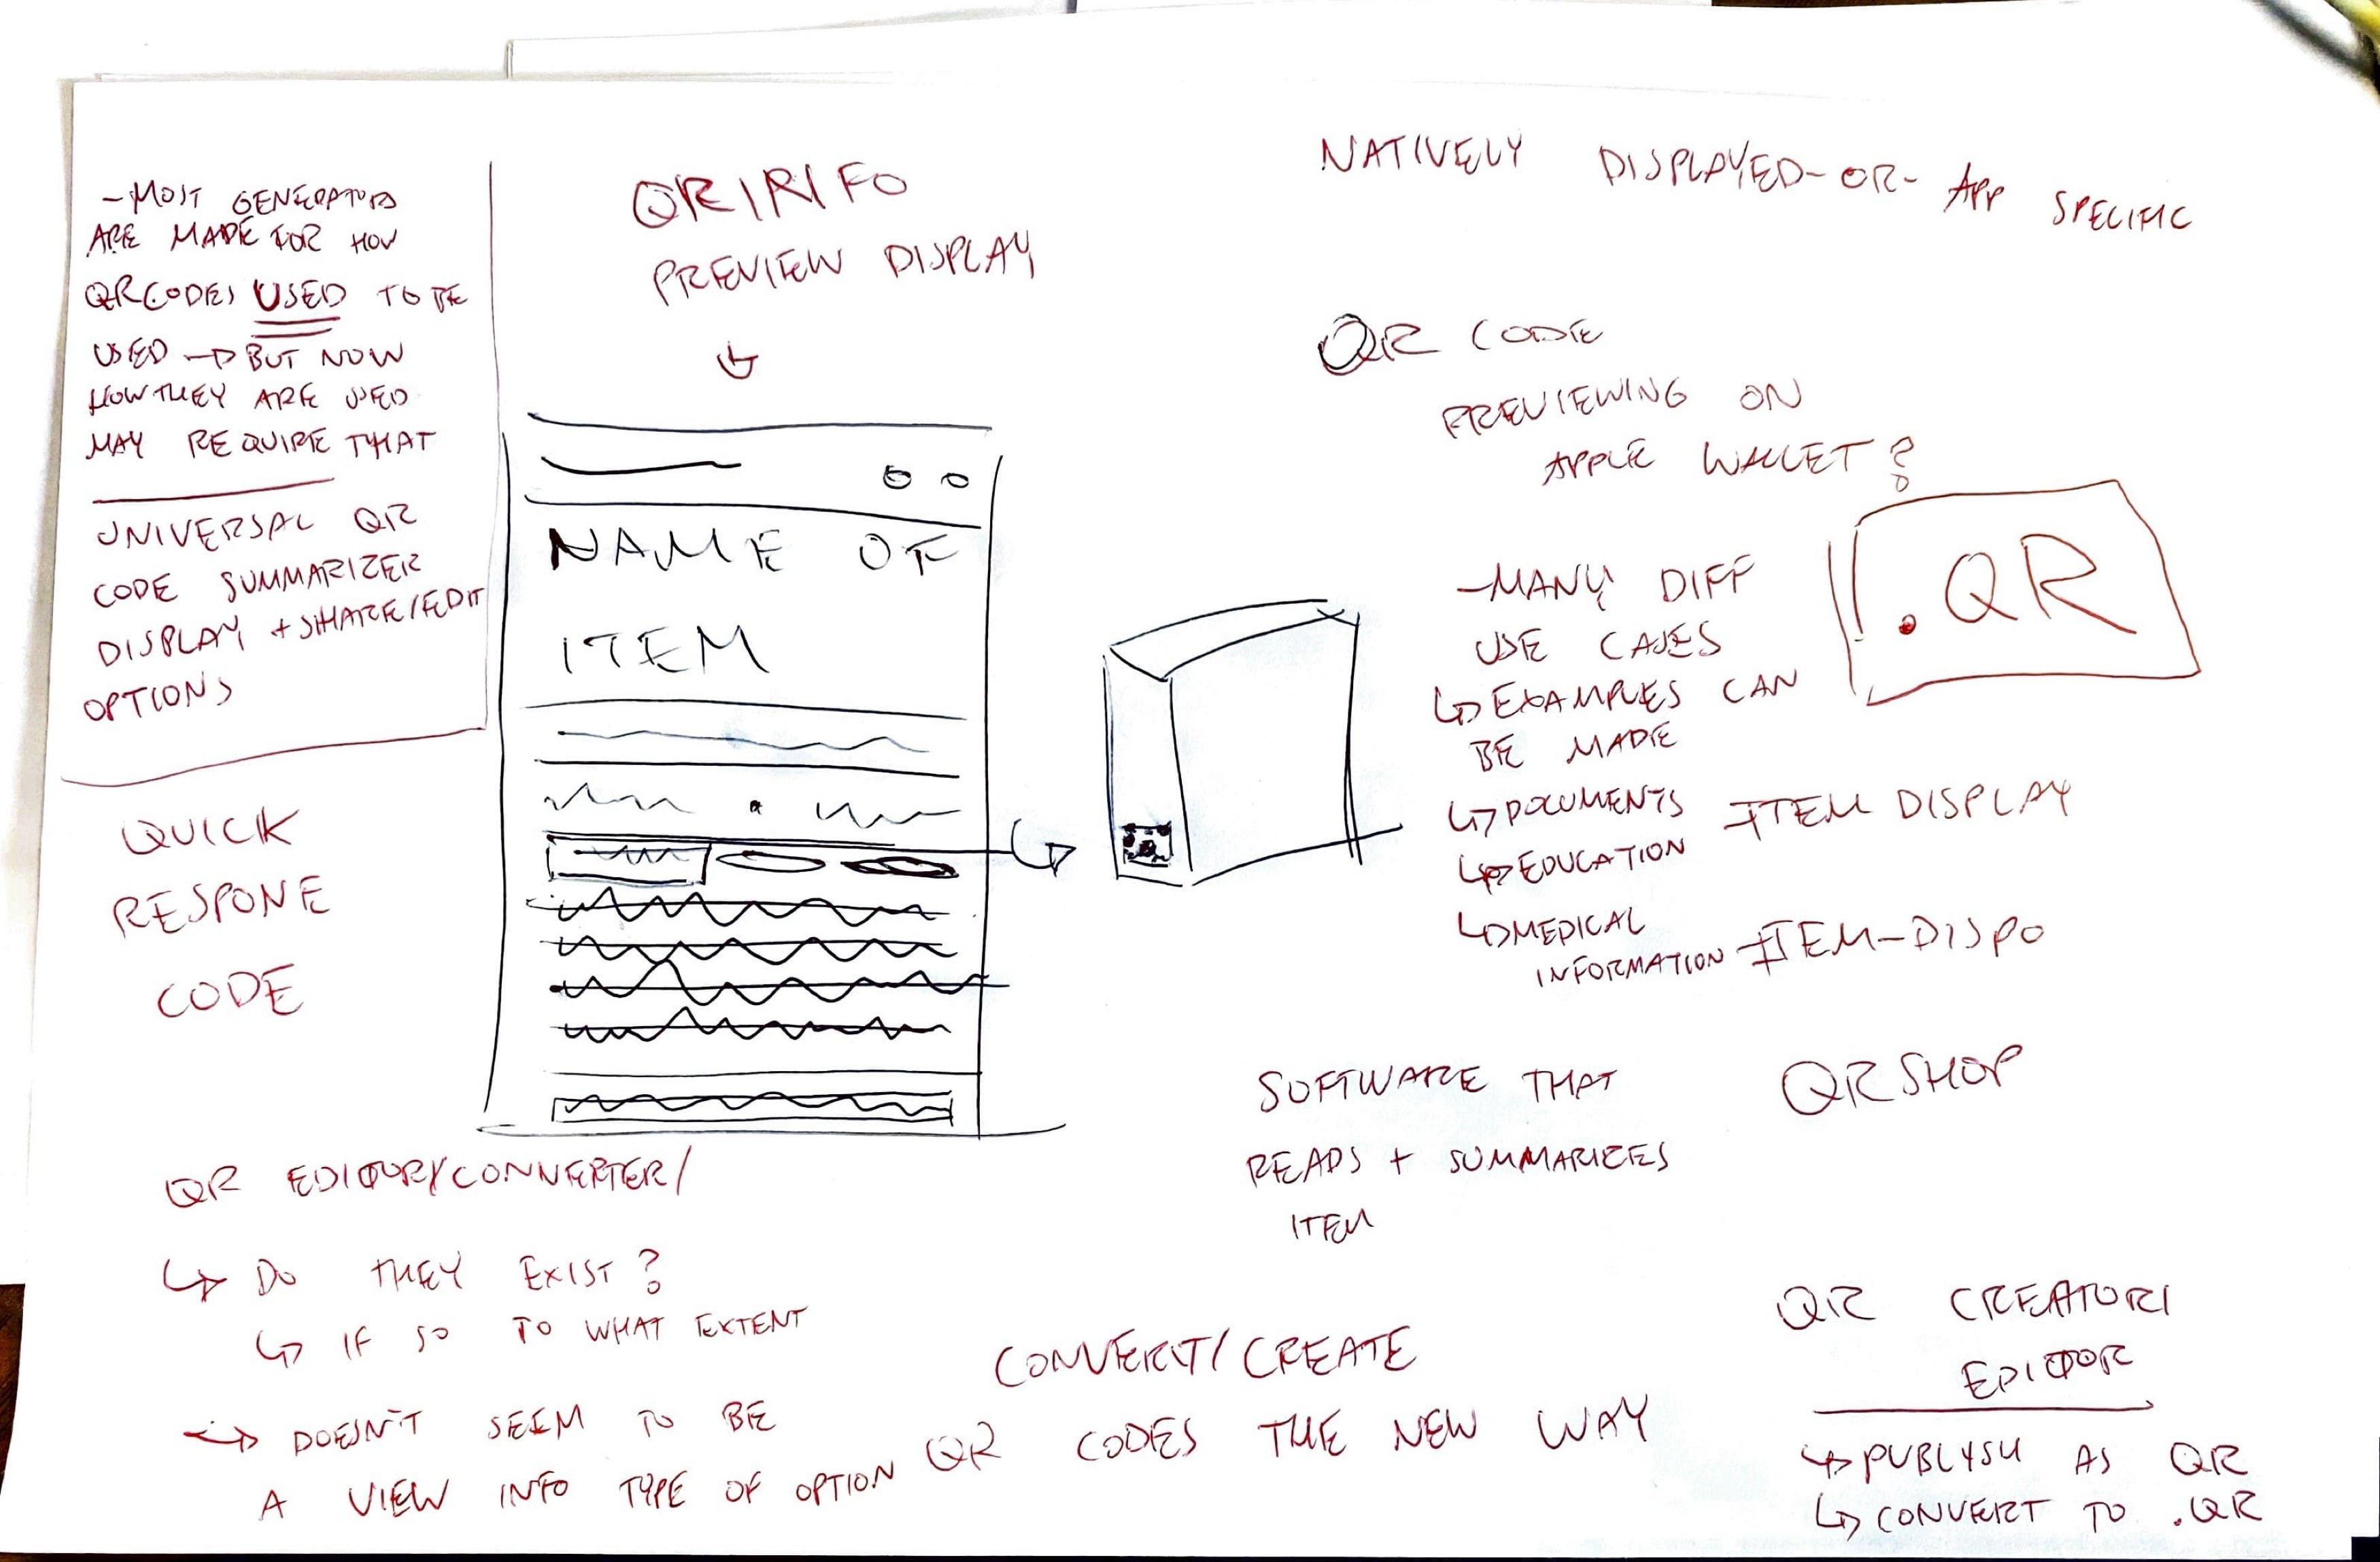 -MOST GENERATORS
ARE MADE FOR HOW
QR CODES USED TO BE
USED → BUT NOW
HOW THEY ARE USED
MAY REQUIRE THAT
UNIVERSAL QR
CODE SUMMARIZER
DISPLAY + SHARE/EDIT
OPTIONS
QUICK
RESPONE
CODE
PREVIEW DISPLAY
NAME OF
ITEM
NATIVELY DISPLAYED-OR- APP SPECIFIC
QR CODE
PREVIEWING ON
APPLE WALLET?
.QR
-MANY DIFF
USE CASES
↳ EXAMPLES CAN
BE MADE
↳ DOCUMENTS
↳ EDUCATION
↳ MEDICAL
INFORMATION
ITEM DISPLAY
ITEM-DISPO
SOFTWARE THAT
READS + SUMMARIZES
ITEM
QRSHOP
QR EDITOR/CONVERTER/
↳ DO THEY EXIST?
↳ IF SO TO WHAT EXTENT
↳ DOESN'T SEEM TO BE
A VIEW INFO TYPE OF OPTION
CONVERT/CREATE
QR CODES THE NEW WAY
QR CREATOR/
EDITOR
↳ PUBLYSH AS QR
↳ CONVERT TO .QR